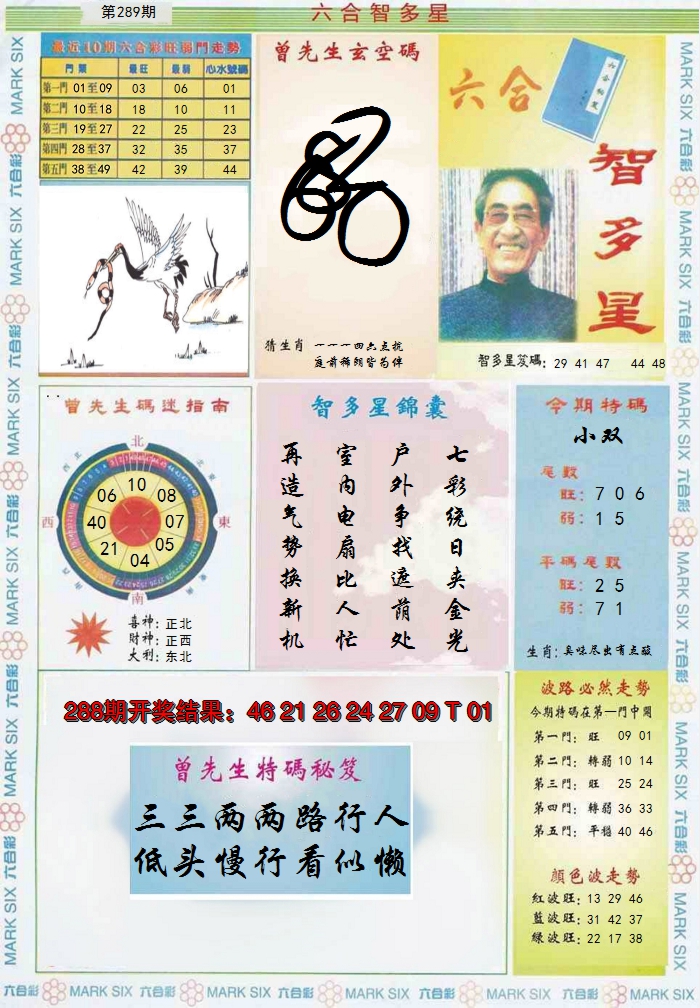 第289期
六合智多星
最近10期六合彩旺弱門走勢
門類 最旺 最弱 心水號碼
第一門 01至09 03 06 01
第二門 10至18 18 10 11
第三門 19至27 22 25 23
第四門 28至37 32 35 37
第五門 38至49 42 39 44
曾先生玄空碼
猜生肖 一一一四六点抗
庭前稀朗皆为伴
六合
智多星
智多星笈碼: 29 41 47 44 48
曾先生碼迷指南
北
西北
北東
10
06 08
西 40 07 東
21 05
04
南
喜神: 正北
財神: 正西
大利: 东北
智多星錦囊
七彩绕日夹金光
户外争找遮荫处
室内电扇比人忙
再造气势换新机
今期特碼
小双
尾數
旺: 7 0 6
弱: 1 5
平碼尾數
旺: 2 5
弱: 7 1
生肖: 臭味尽出有点酸
288期开奖结果: 46 21 26 24 27 09 T 01
曾先生特碼秘笈
三三两两路行人
低头慢行看似懒
波路必然走勢
今期特碼在第一門中開
第一門: 旺 09 01
第二門: 轉弱 10 14
第三門: 旺 25 24
第四門: 轉弱 36 33
第五門: 平穩 40 46
顏色波走勢
紅波旺: 13 29 46
藍波旺: 31 42 37
綠波旺: 22 17 38
六合彩 MARK SIX 六合彩 MARK SIX 六合彩 MARK SIX 六合彩 MARK SIX 六合彩 MARK SIX